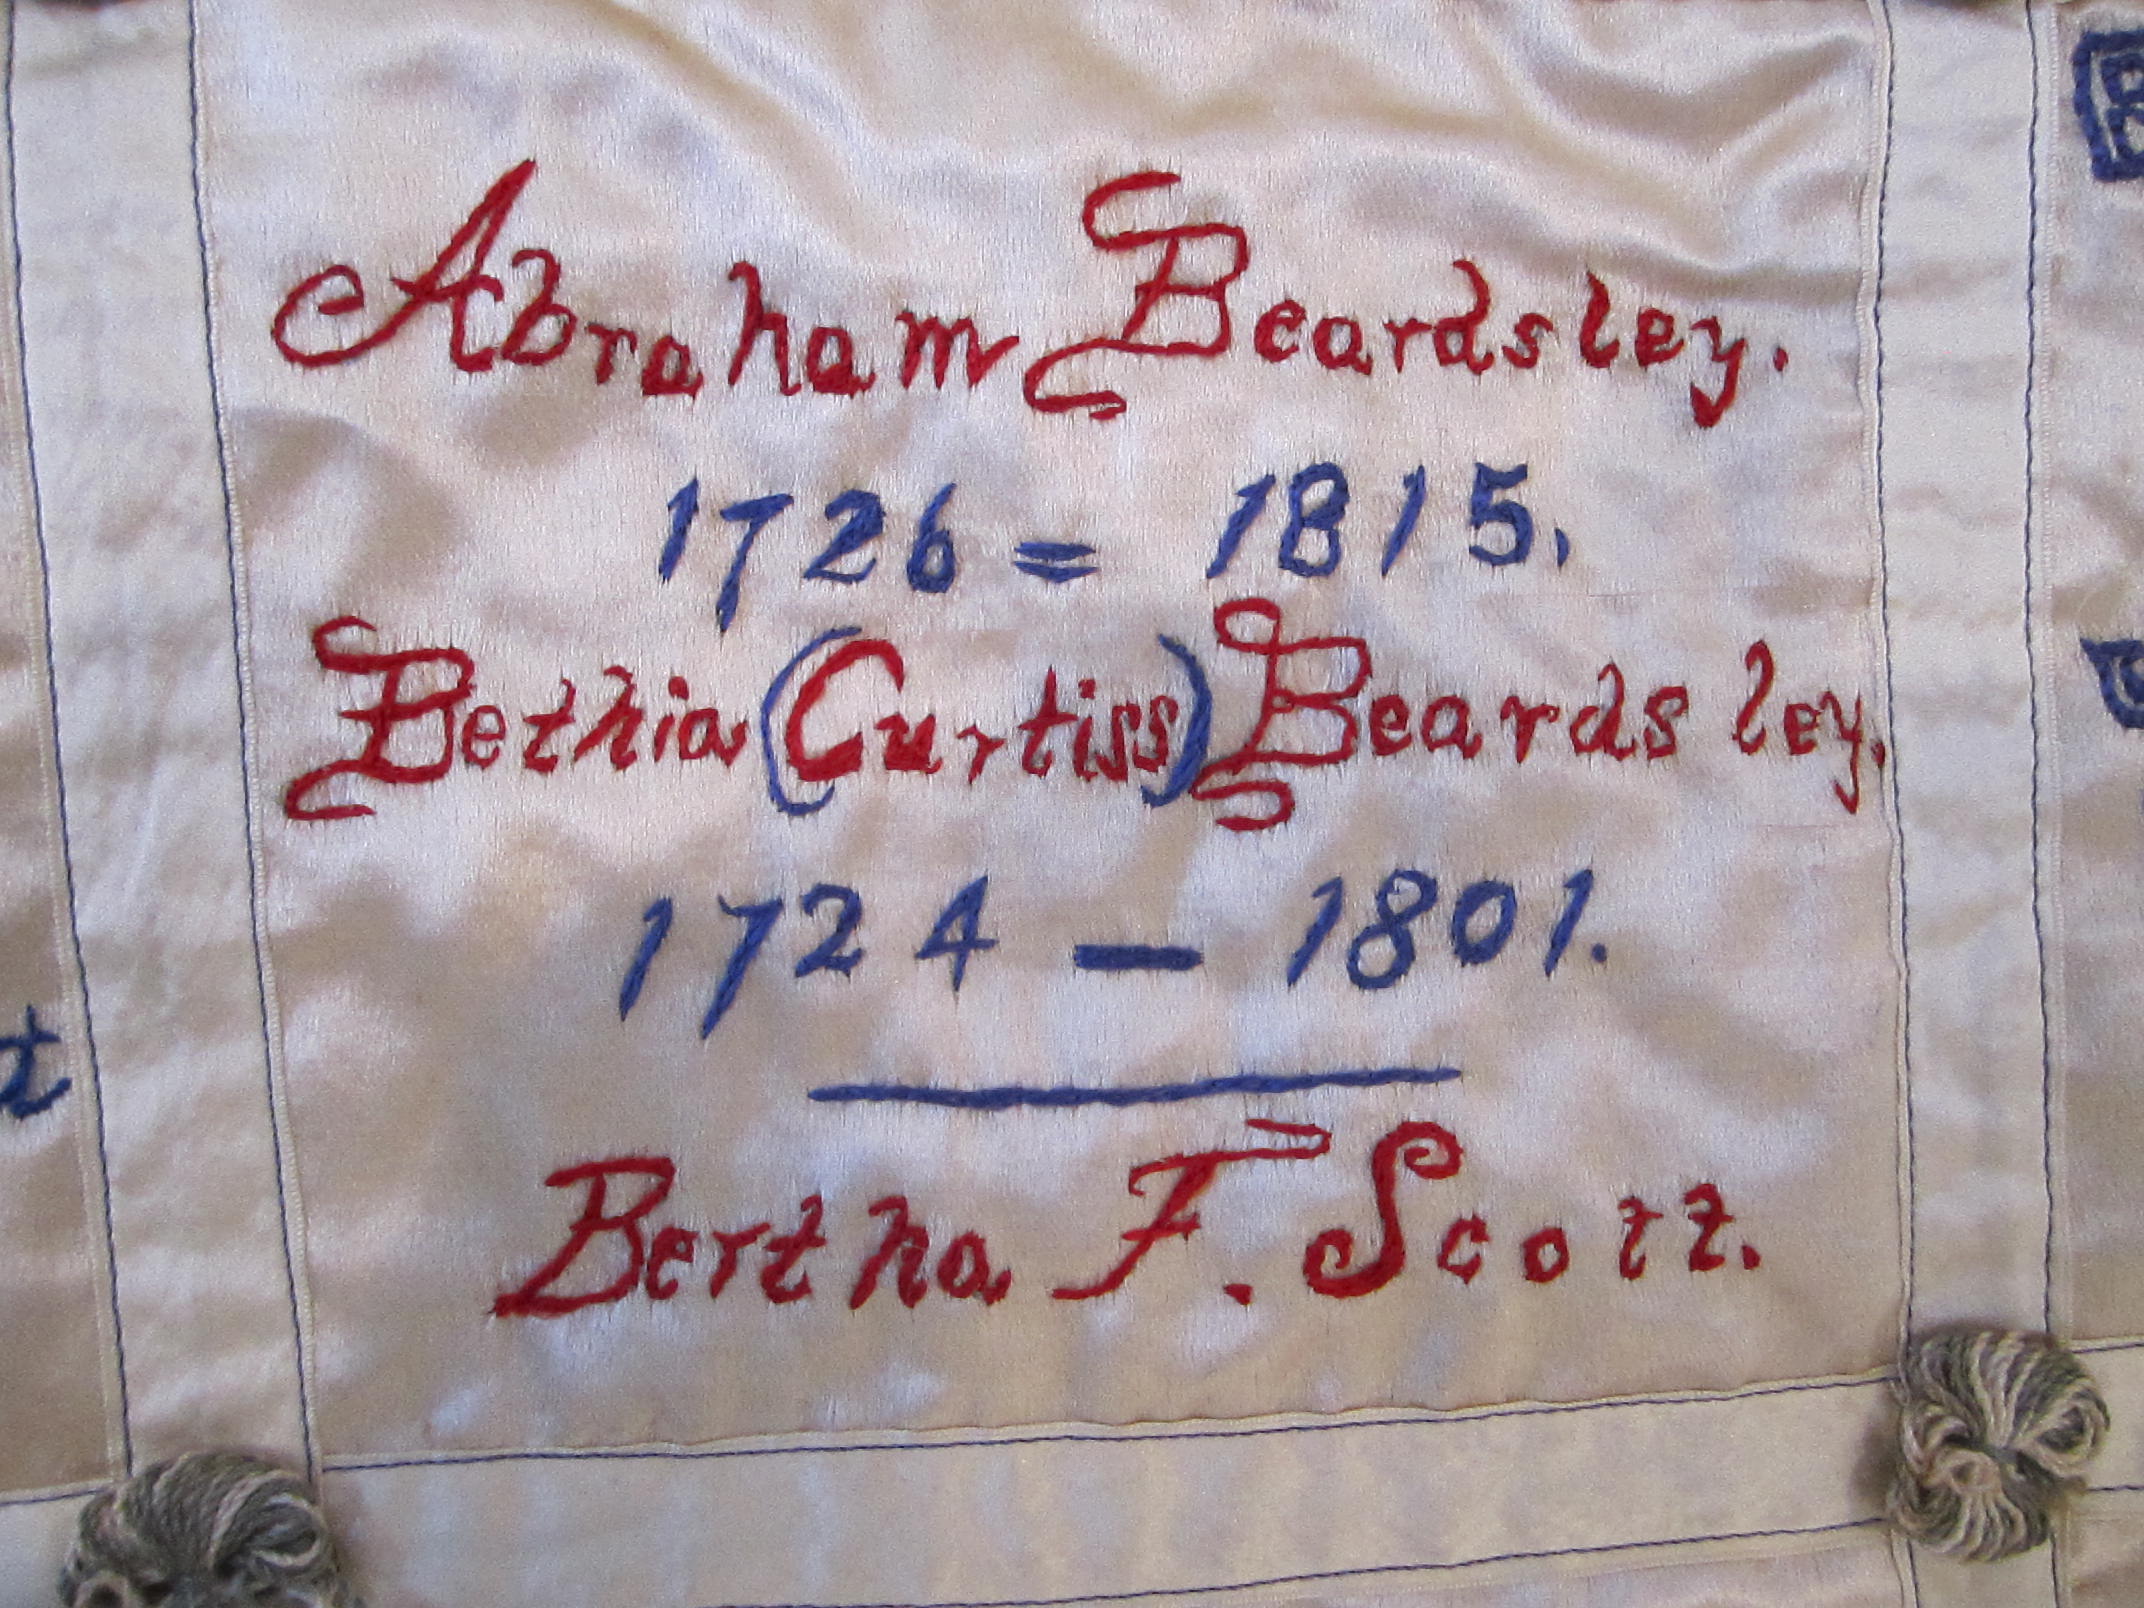 Abraham Beardsley.
1726 = 1815.
Bethia (Curtiss) Beardsley.
1724 – 1801.
Bertha F. Scott.